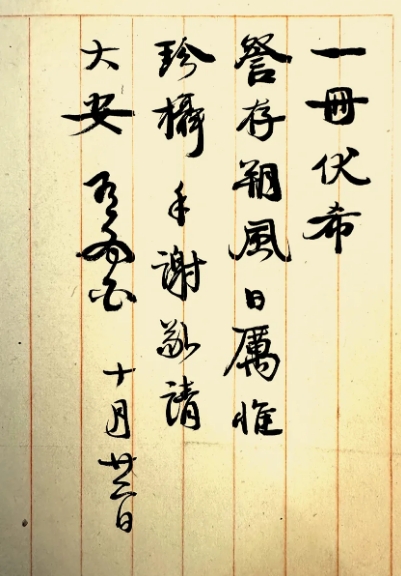 一冊伏希
詧存朔風日厲惟
珍攝 手謝敬請
大安 白 十月廿三日